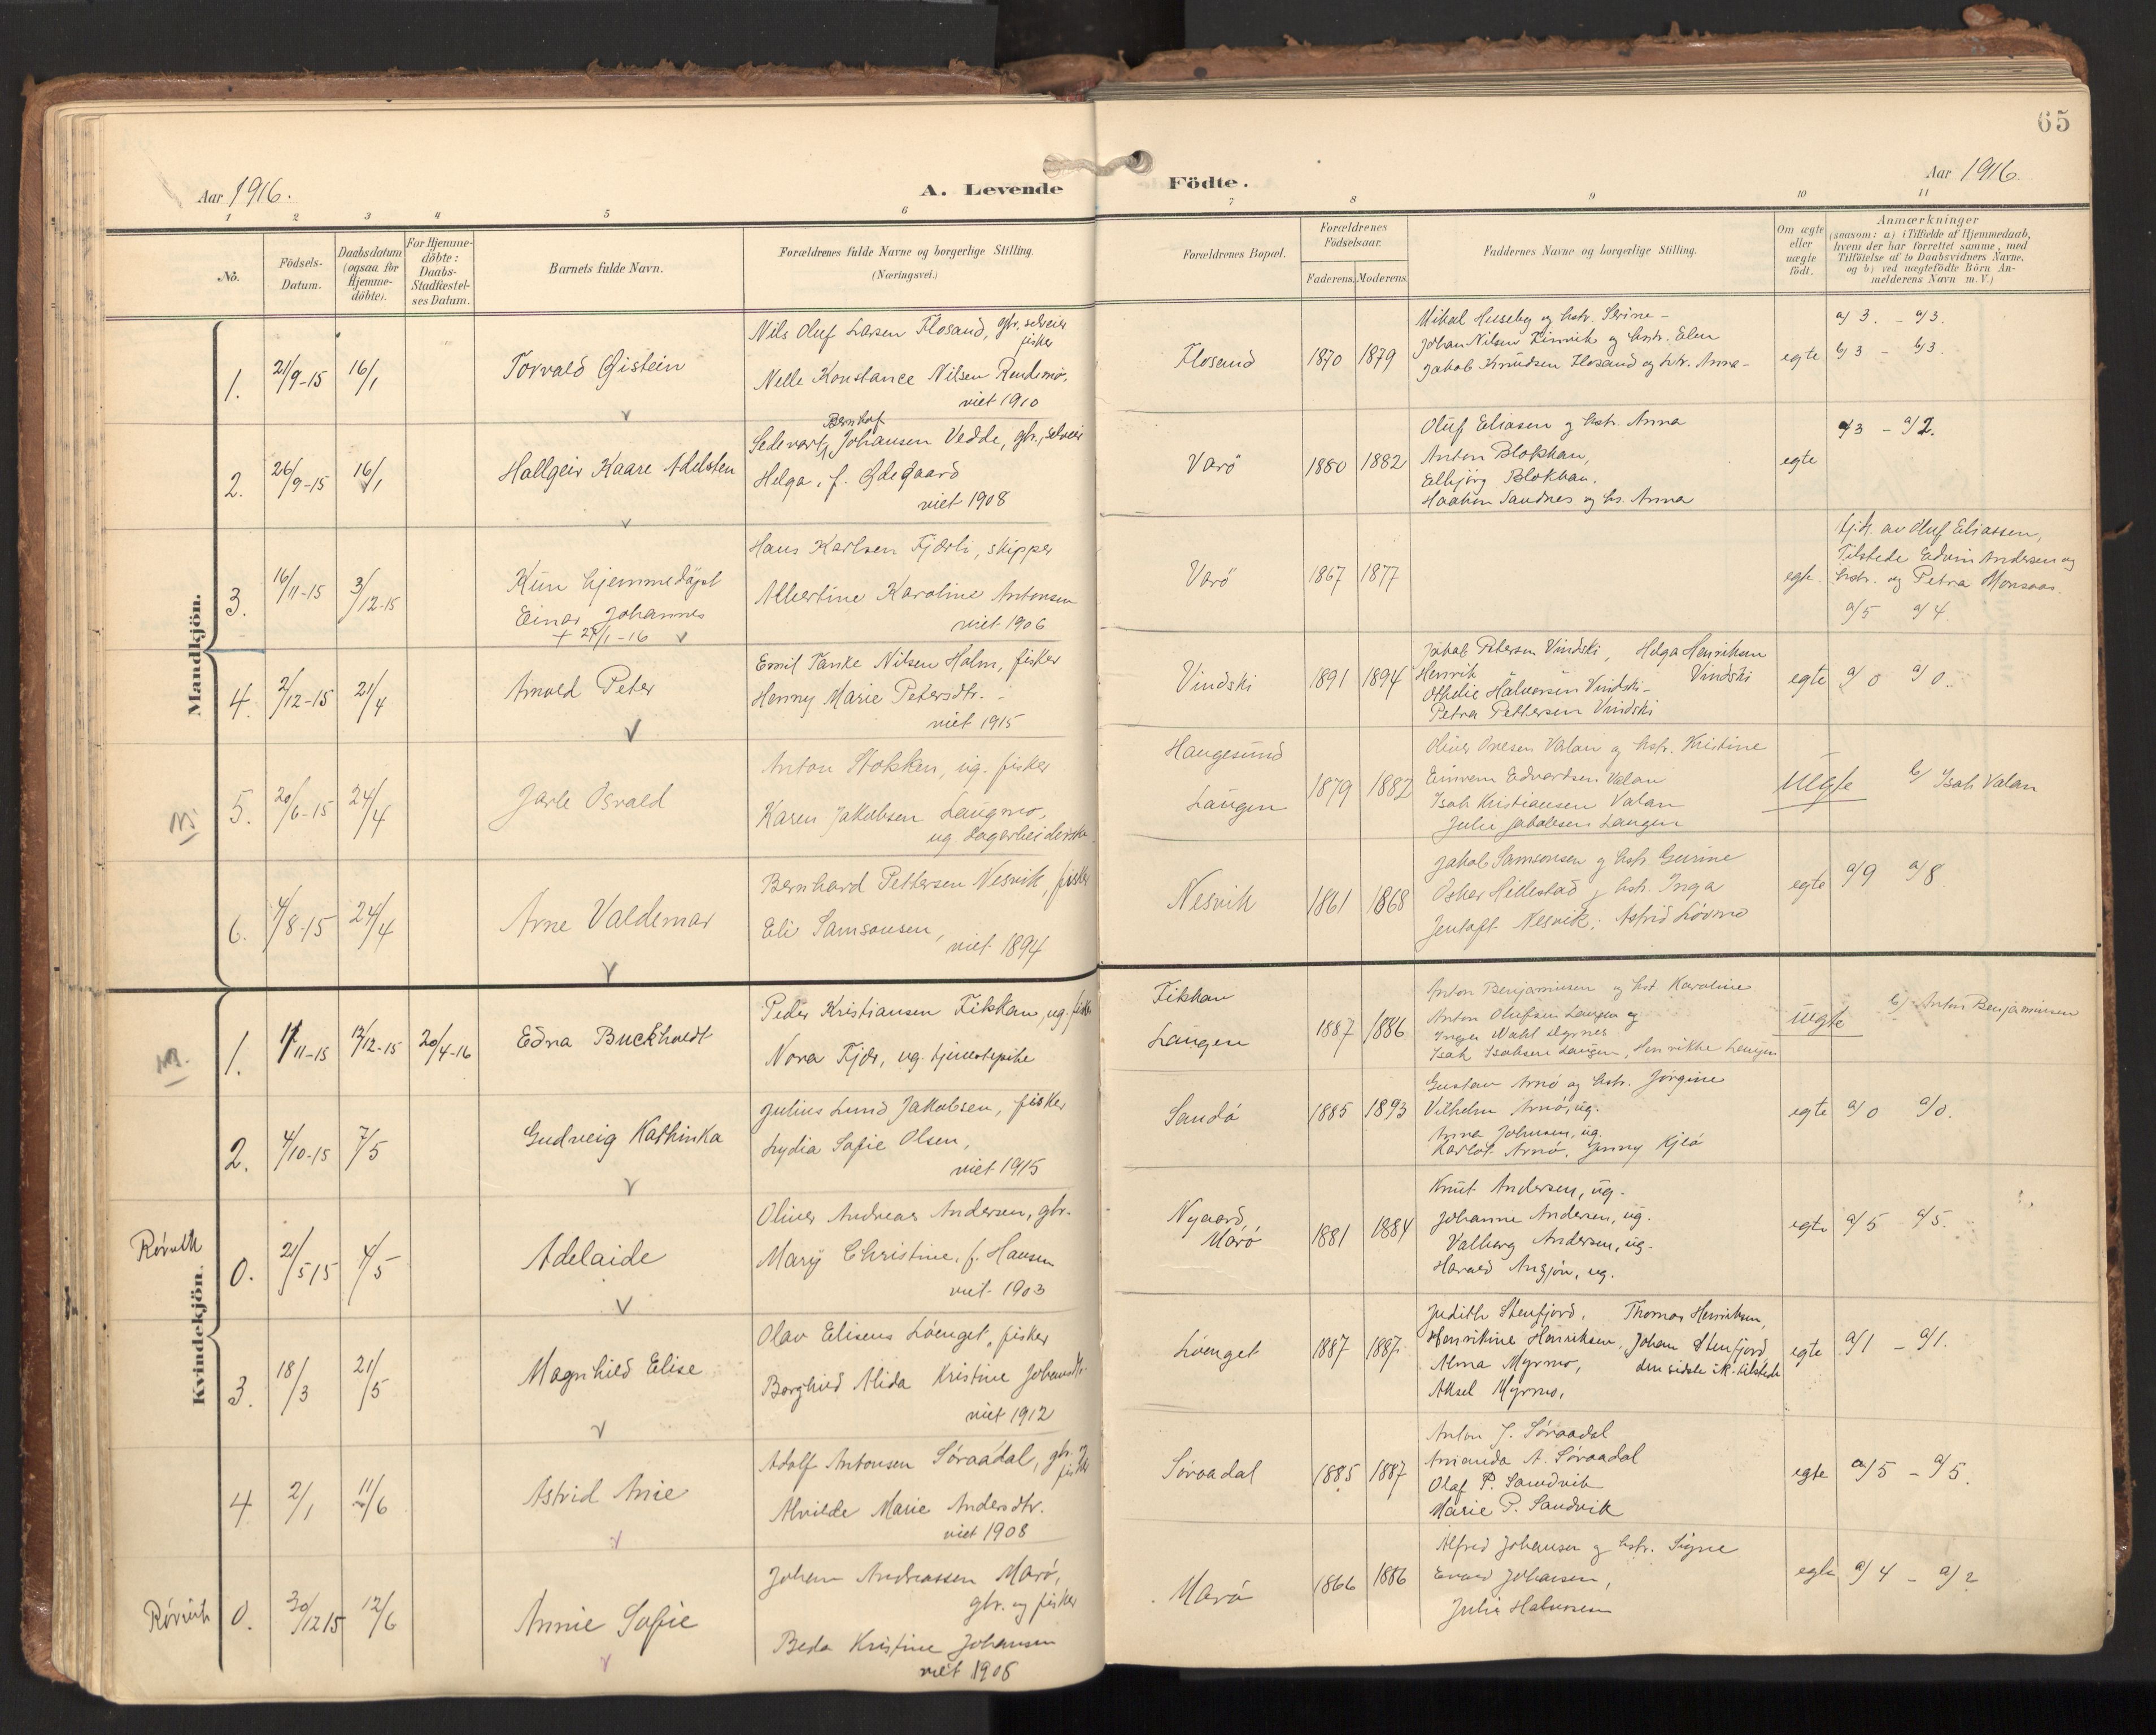 65
Aar 1916.
A. Levende
Födte.
Aar 1916.
1 2 3 4 5 6 7 8 9 10 11
No.
Födsels-
Datum.
Daabsdatum
(ogsaa for
Hjemme-
döbte).
For Hjemme-
döbte:
Daabs-
Stadfæstel-
ses Datum.
Barnets fulde Navn.
Forældrenes fulde Navne og borgerlige Stilling.
(Næringsvei.)
Forældrenes Bopæl.
Forældrenes
Födselsaar.
Faderens. Moderens.
Faddernes Navne og borgerlige Stilling.
Om ægte
eller
uægte
födt.
Anmærkninger
(saasom: a) i Tilfælde af Hjemmedaab,
hvem der har forrettet samme, med
Tilföielse af to Daabsvidners Navne,
og b) ved uægtefödte Börn An-
melderens Navn m. V.)
Mandkjön.
1.
21/9-15
16/1
Torvald Øistein
Nils Oluf Larsen Flosand, gbr. selveier
fisker
Nelle Konstance Nilsen
viet 1910
Flosand
1870 1879
Mikal Huseby og hstr. Serine -
Johan Nilsen og hstr. Elen
Jakob Knudsen Flosand og hstr. Anna -
egte
a/3. - a/3.
b/3 - b/3.
2.
26/9-15
16/1
Hallgeir Kaare Adelsten
Bernhof
Sedevart Johansen Vedde, gbr., selveier
Helga, f. Ødegaard
viet 1908
Varö
1880 1882
Oluf Eliasen og hstr. Anna
Anton Blokhau,
Elbjörg Blokhau.
Haakon Sandnes og hs. Anna
egte
a/3 - a/2.
3.
16/11-15
3/12-15
Kun hjemmedöpt
Einar Johannes
+ 21/1-16
Hans Karlsen Fjærli, skipper
Albertine Karoline Antonsen
viet 1906
Varö
1867 1877
egte.
hj.d. av Oluf Eliassen,
Tilstede Edvin Andersen og
hstr. og Petra Monsaas.
a/5 a/4.
4.
2/12-15
21/4
Arnold Peter
Emil Tanke Nilsen Holm, fisker
Henny Marie Petersdtr.
viet 1915
Vindski
1891 1894
Jakob Petersen Vindski, Helga Henriksen
Henrik Vindski
Othelie Halversen Vindski -
Petra Pettersen Vindski
egte
a/0 a/0.
5.
20/6-15
24/4
Jarle Osvald
Anton Stokken, ug. fisker
Karen Jakobsen Laugmo,
ug. dagarbeiderske.
Haugesund
Laugen
1879 1882
Oliver Ovesen Valan og hstr. Kristine
Edvardsen Valan
Isak Kristiansen Valan
Julie Jakobsen Laugen
uegte
b/ Isak Valan
6.
4/8-15
24/4
Arne Valdemar
Bernhard Pettersen Nesvik, fisker
Eli Samsonsen,
viet 1894
Nesvik
1861 1868
Jakob Samsonsen og hstr. Gurine
Oskar Hillestad og hstr. Inga
Jentoft Nesvik. Astrid Lövmo
egte
a/9 a/8
Kvindekjön.
1.
1/11-15
12/12-15
20/4-16
Edna Buckholdt
Peder Kristiansen Fikkan, ug. fisker
Nora Fjær, ug. tjenestepike
Fikkan
Laugen
1887 1886
Anton Benjaminsen og hst Karoline
Anton Olufsen Laugen og
Inger Wahl
Isak Isaksen Laugen, Henrikke Laugen
uegte
b/ Anton Benjaminsen
2.
4/10-15
7/5
Gudveig Kathinka
Julius Lund Jakobsen, fisker
Lydia Sofie Olsen,
viet 1915
Sandö
1885 1893
Gustav Arnö og hstr. Jörgine
Vilhelm Arnö, ug.
Anna Johnsen, ug.
Karlot Arnö. Jenny Kjeö
egte
a/0 a/0.
Rörvik
0.
21/5 15
4/5
Adelaide
Oliver Andreas Andersen, gbr.
Mary Christine, f. Hansen
viet 1903
Nygaard,
Marö
1881 1884
Knut Andersen, ug.
Johanne Andersen, ug.
Valborg Andersen, ug.
Harald Angjön, ug.
egte
a/5 a/5.
3.
18/3
21/5
Magnhild Elise
Olav Elisens Löenget, fisker
Borghild Alida Kristine Johansdtr.
viet 1912
Löenget
1887 1887.
Judith Stenfjord. Thomas Henriksen,
Henrikine Henriksen, Johan Stenfjord
Alma Myrmo, den sidste ik. tilstede
Aksel Myrmo,
egte
a/1 - a/1.
4.
2/1
11/6
Astrid Anie
Adolf Antonsen Söraadal, gbr. og
fisker
Alvilde Marie Andersdtr.
viet 1908
Söraadal
1885 1887
Anton J. Söraadal
Amanda A. Söraadal
Olaf P. Sandvik
Marie P. Sandvik
egte
a/5 - a/5.
Rörvik
0.
30/12 15
12/6
Annie Sofie
Johan Andreassen Marö,
gbr. og fisker
Beda Kristine Johansen
viet 1908
Marö
1866 1886
Alfred Johansen og hstr. Signe
Johansen,
Julie Halvorsen
egte
a/4 - a/2